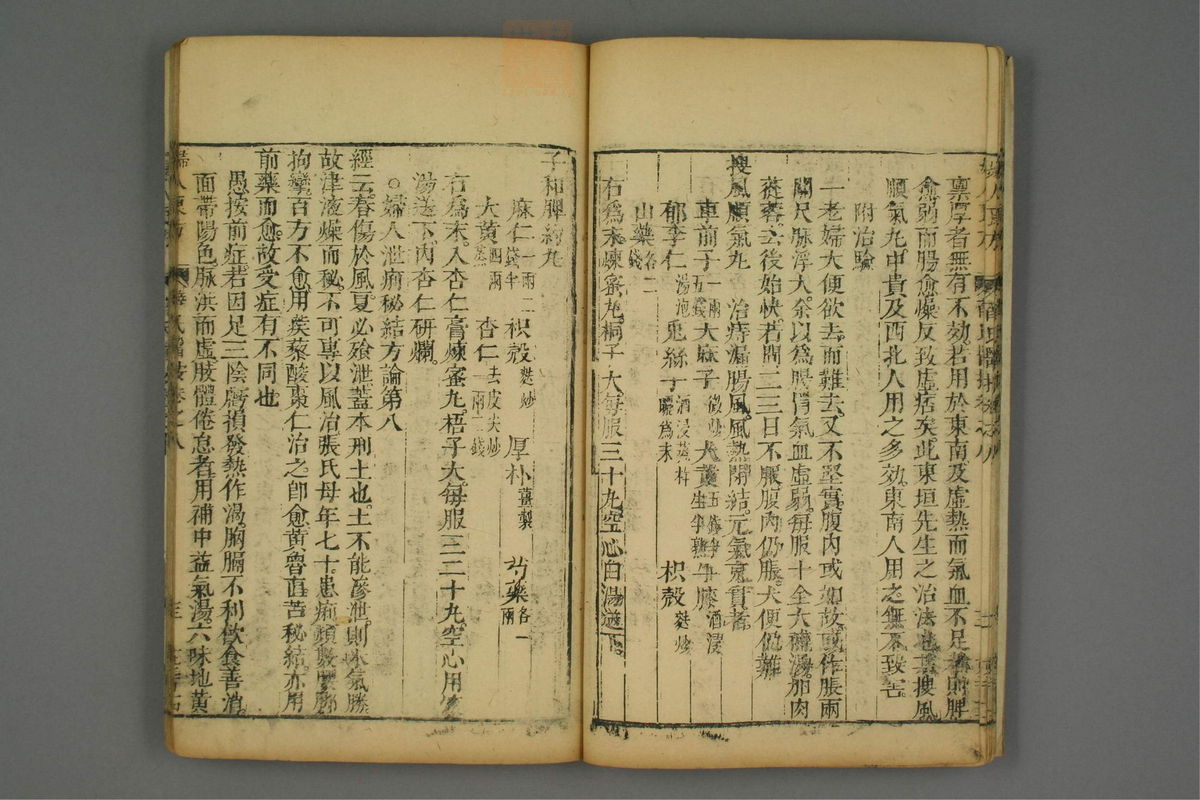 稟厚者無有不效若用於東南及虛熱而氣血不足者則脾
愈弱而腸愈燥反致虛痞矣此東垣先生之治法也其搜風
順氣丸中貴及西北人用之多效東南人用之無不致害
附治驗
一老婦大便欲去而難去又不堅實腹內或如故或作脹兩
關尺脉浮大余以為腸胃氣血虛弱每服十全大補湯加肉
蓯蓉去後始快若間二三日不服腹內仍脹大便仍難
搜風順氣丸 治痔漏腸風風熱閉結元氣充實者
車前子一兩五錢 大麻子微炒 大黃五錢半生半熟 牛膝酒浸
郁李仁湯泡 兎絲子酒浸蒸杵曬為末 枳殼麩炒
山藥各二錢
右為末煉蜜丸桐子大每服三十丸空心白湯送下
子和脾約丸
麻仁一兩二錢半 枳殼麩炒 厚朴薑製 芍藥各一兩
大黃四兩蒸 杏仁去皮尖炒一兩二錢
右為末入杏仁膏煉蜜丸梧子大每服三二十丸空心用
湯送下內杏仁研爛
○婦人泄痢秘結方論第八
經云春傷於風夏必飧泄蓋木刑土也土不能滲泄則木氣勝
故津液燥而秘不可專以風治張氏母年七十患痢頻數
拘攣百方不愈用蒺藜酸棗仁治之卽愈黃魯直苦秘結亦用
前藥而愈故受症有不同也
愚按前症若因足三陰虧損發熱作渴胸膈不利飲食善消
面帶陽色脉洪而虛肢體倦怠者用補中益氣湯六味地黃